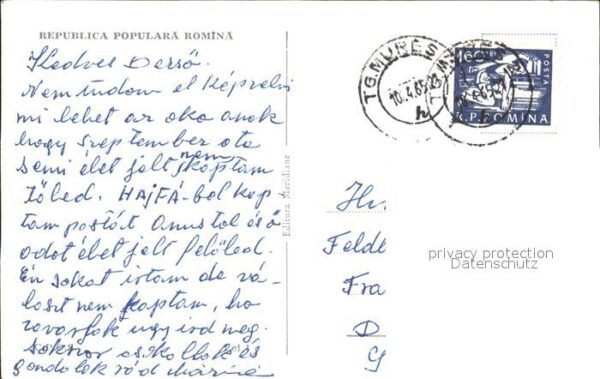 REPUBLICA POPULARĂ ROMÎNĂ
Kedves Derső.
Nem tudom el képzelni
mi lehet az oka anak
hogy szeptember ota
semi élet jelt nem kaptam
tőled. HAJFÁ-ból kap
tam postát Anustol és ő
adot élet jelt felőled.
Én sokat irtam de vá-
laszt nem kaptam, ha
zavarják ugy ird meg.
sokszor csokollok és
gondolok rád
Editura Meridiane
TG. MUREȘ
10.4.65.23
h
POSTA
R.P.ROMINA
Hr.
Feldt
Fra
D
privacy protection
Datenschutz